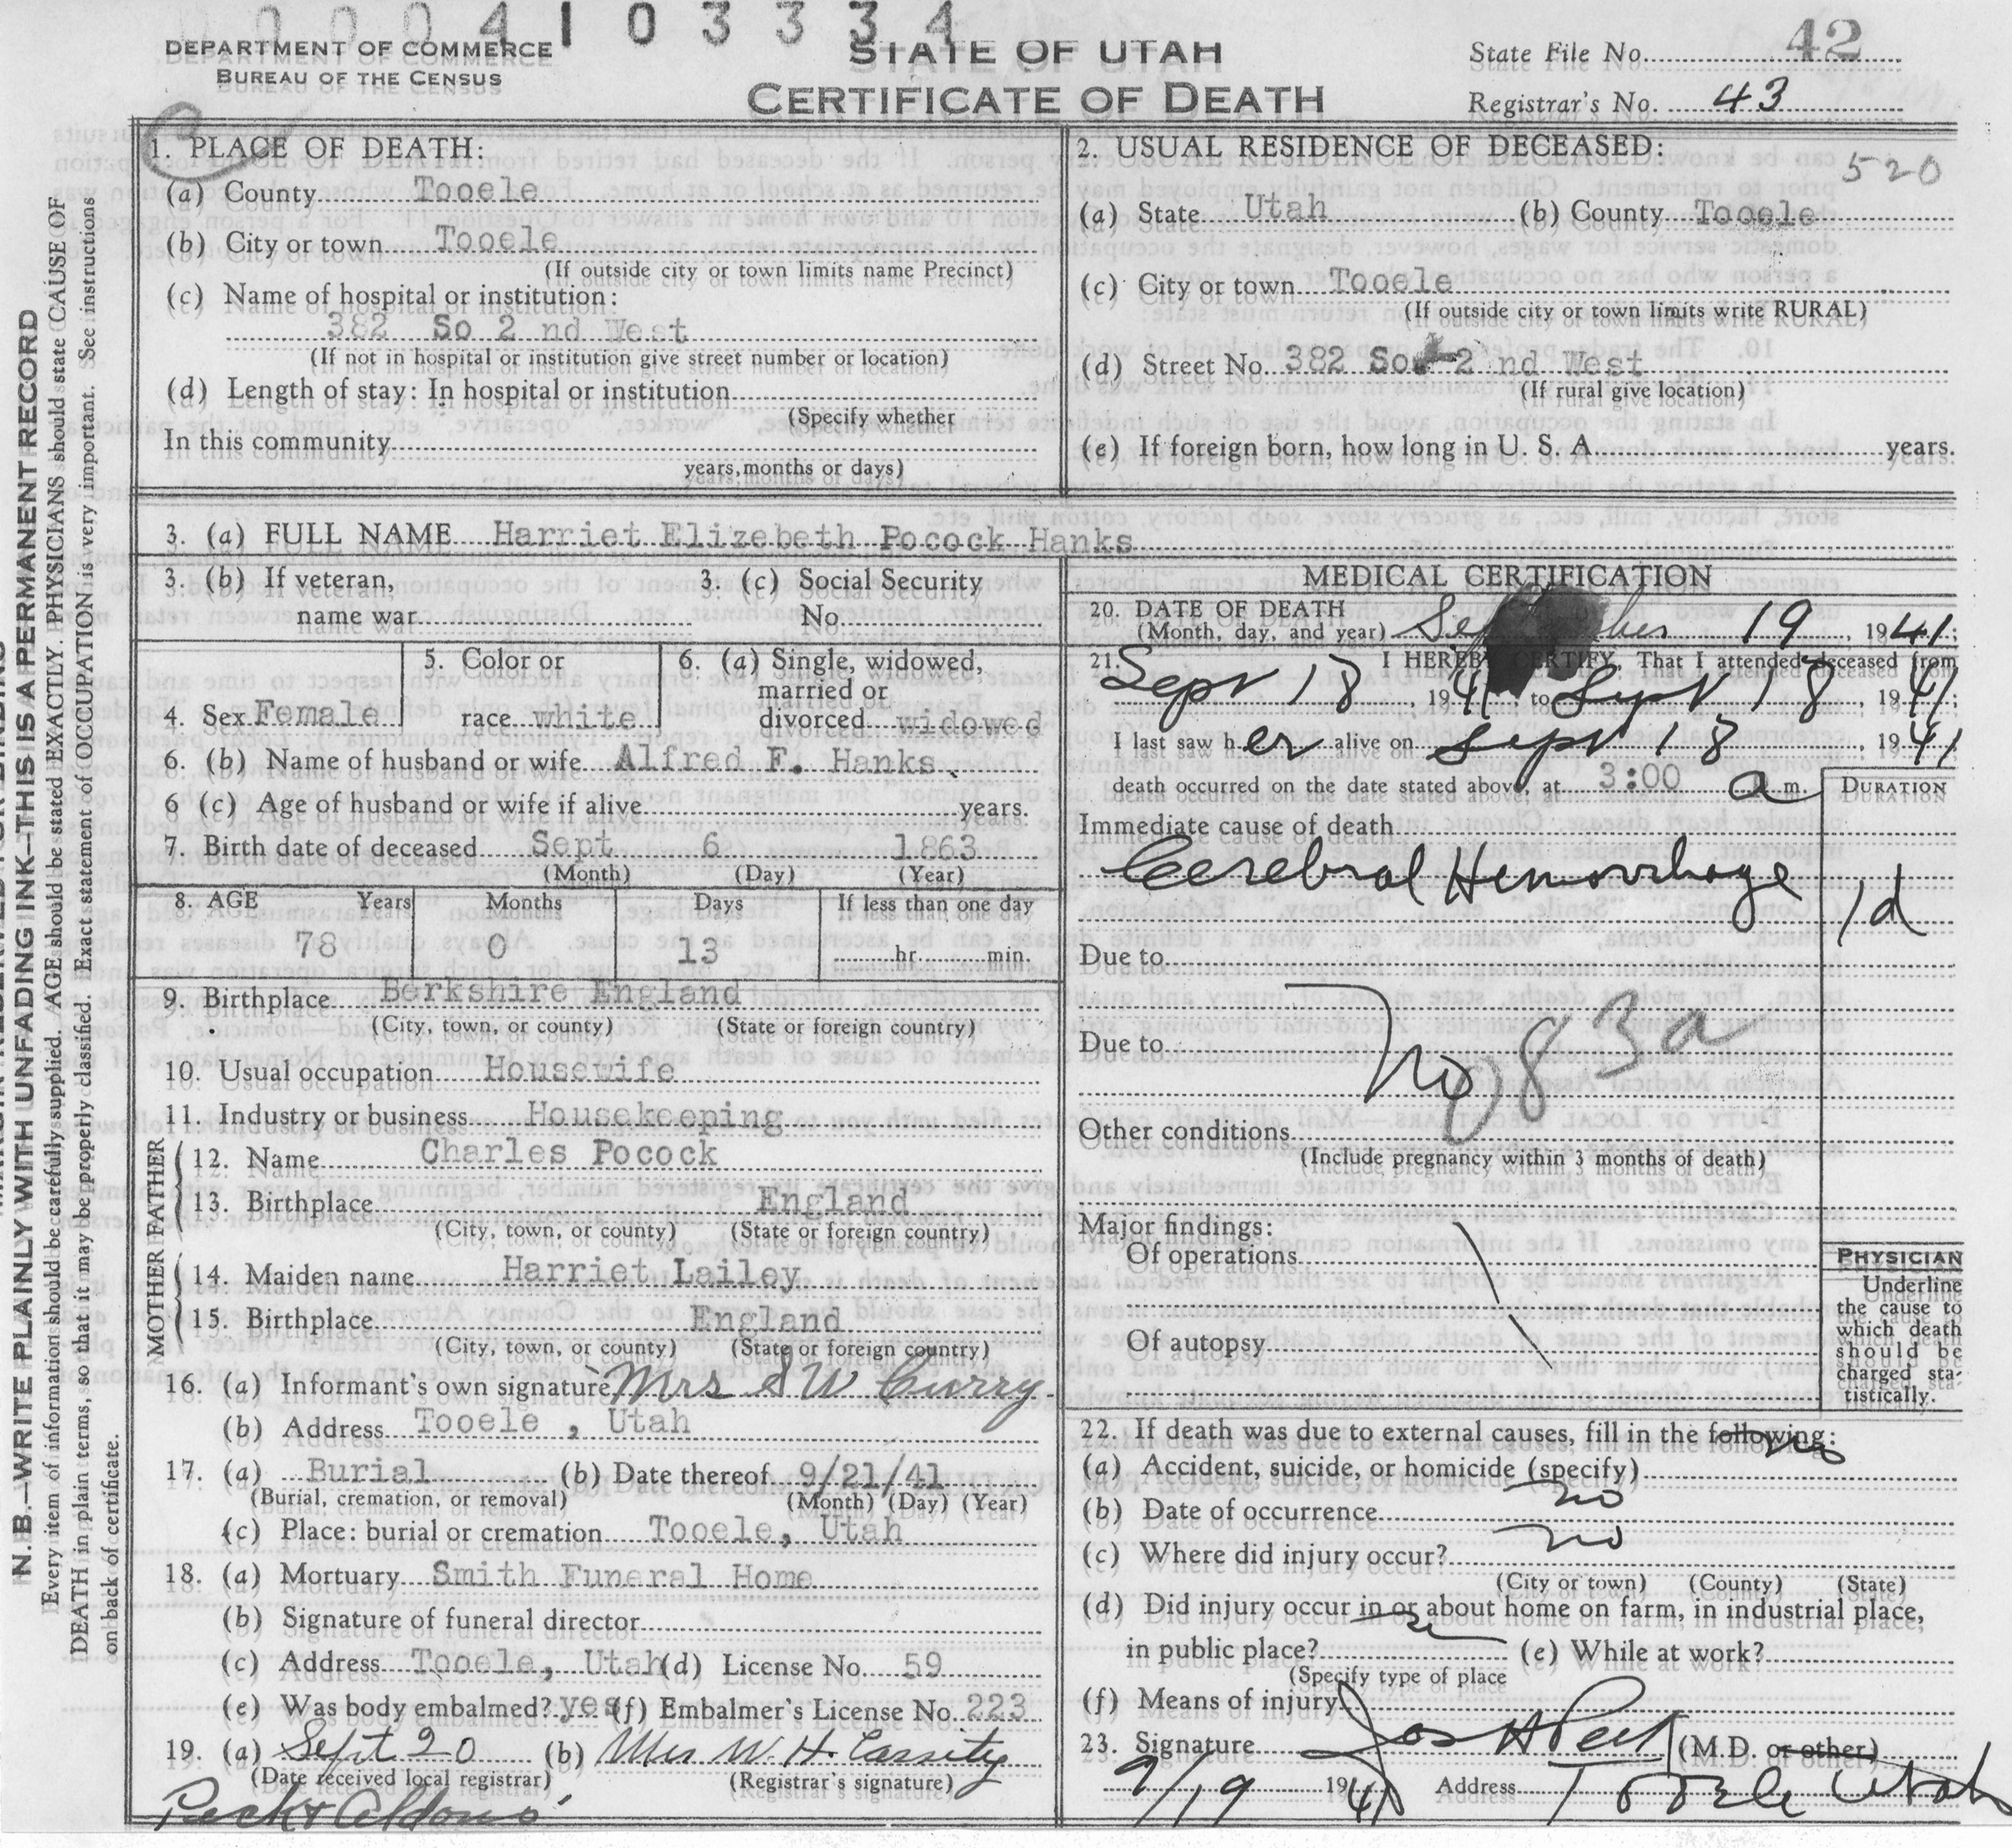 00041033334
DEPARTMENT OF COMMERCE
BUREAU OF THE CENSUS
STATE OF UTAH
CERTIFICATE OF DEATH
State File No. 42
Registrar's No. 43
N. B.—WRITE PLAINLY WITH UNFADING INK—THIS IS A PERMANENT RECORD
Every item of information should be carefully supplied. AGE should be stated EXACTLY. PHYSICIANS should state CAUSE OF
DEATH in plain terms, so that it may be properly classified. Exact statement of OCCUPATION is very important. See instructions
on back of certificate.
1. PLACE OF DEATH:
(a) County Tooele
(b) City or town Tooele
(If outside city or town limits name Precinct)
(c) Name of hospital or institution:
382 So 2 nd West
(If not in hospital or institution give street number or location)
(d) Length of stay: In hospital or institution
(Specify whether
In this community
years, months or days)
2. USUAL RESIDENCE OF DECEASED:
520
(a) State Utah (b) County Tooele
(c) City or town Tooele
(If outside city or town limits write RURAL)
(d) Street No. 382 So 2 nd West
(If rural give location)
(e) If foreign born, how long in U. S. A. years.
3. (a) FULL NAME Harriet Elizebeth Pocock Hanks
3. (b) If veteran,
name war
3. (c) Social Security
No.
4. Sex Female
5. Color or
race white
6. (a) Single, widowed,
married or
divorced widowed
6. (b) Name of husband or wife Alfred F. Hanks
6 (c) Age of husband or wife if alive years.
7. Birth date of deceased Sept 6 1863
(Month) (Day) (Year)
8. AGE Years Months Days If less than one day
78 0 13 hr. min.
9. Birthplace Berkshire England
(City, town, or county) (State or foreign country)
10. Usual occupation Housewife
11. Industry or business Housekeeping
FATHER
12. Name Charles Pocock
13. Birthplace England
(City, town, or county) (State or foreign country)
MOTHER
14. Maiden name Harriet Lailey
15. Birthplace England
(City, town, or county) (State or foreign country)
16. (a) Informant's own signature Mrs S W Curry
(b) Address Tooele , Utah
17. (a) Burial (b) Date thereof 9/21/41
(Burial, cremation, or removal) (Month) (Day) (Year)
(c) Place: burial or cremation Tooele, Utah
18. (a) Mortuary Smith Funeral Home
(b) Signature of funeral director
(c) Address Tooele, Utah (d) License No. 59
(e) Was body embalmed? yes (f) Embalmer's License No. 223
19. (a) Sept 20 (b) Mrs W. H. Cassity
(Date received local registrar) (Registrar's signature)
MEDICAL CERTIFICATION
20. DATE OF DEATH
(Month, day, and year) September 19, 1941;
21. I HEREBY CERTIFY, That I attended deceased from
Sept 18, 1941, to Sept 18, 1941;
I last saw her alive on Sept 18, 1941
death occurred on the date stated above, at 3:00 a m.
DURATION
Immediate cause of death
Cerebral Hemorrhage 1d
Due to
83a
Due to no
Other conditions
(Include pregnancy within 3 months of death)
Major findings:
Of operations
Of autopsy
PHYSICIAN
Underline
the cause to
which death
should be
charged sta-
tistically.
22. If death was due to external causes, fill in the following:
no
(a) Accident, suicide, or homicide (specify)
no
(b) Date of occurrence
no
(c) Where did injury occur?
(City or town) (County) (State)
(d) Did injury occur in or about home on farm, in industrial place,
in public place? (e) While at work?
(Specify type of place
(f) Means of injury
23. Signature Jos H Peck (M.D. or other)
9/19 1941 Address Tooele Utah